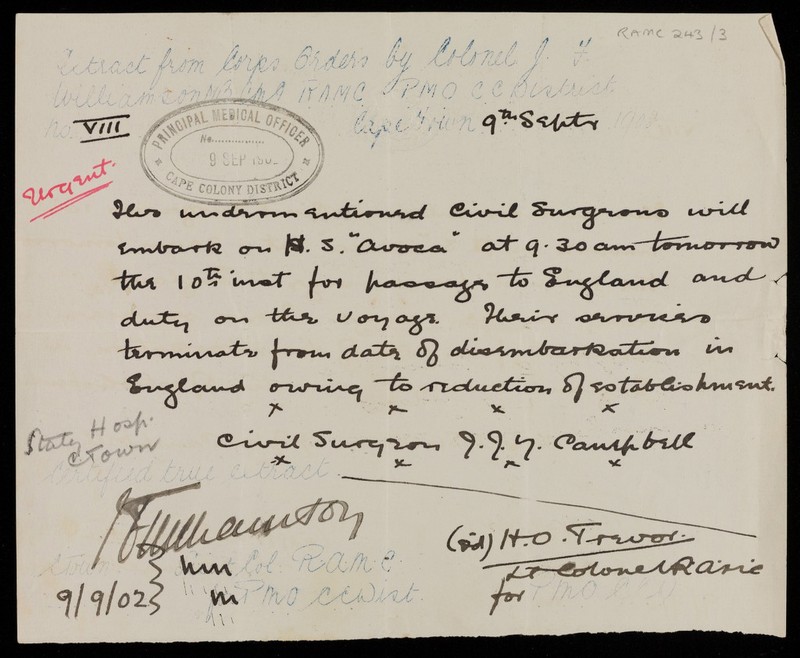 RAMC 243/3
Extract from Corps Orders by Colonel J. F.
Williamson CMG RAMC PMO CC District
No. VIII
Cape Town 9th Septr
PRINCIPAL MEDICAL OFFICER
No.
9 SEP 190
CAPE COLONY DISTRICT
Urgent.
The undermentioned Civil Surgeons will
embark on H. S. "Avoca" at 9.30 am tomorrow
the 10th inst for passage to England and
duty on the voyage. Their services
terminate from date of disembarkation in
England owing to reduction of establishment.
x x x x
State Hosp.
C Town
Civil Surgeon J. J. Y. Campbell
x x x x
Certified true extract.
(sd) H.O. Trevor.
Lt Colonel RAMC
for PMO
CTown
Col. RAMC
9/9/02
PMO CC Dist.